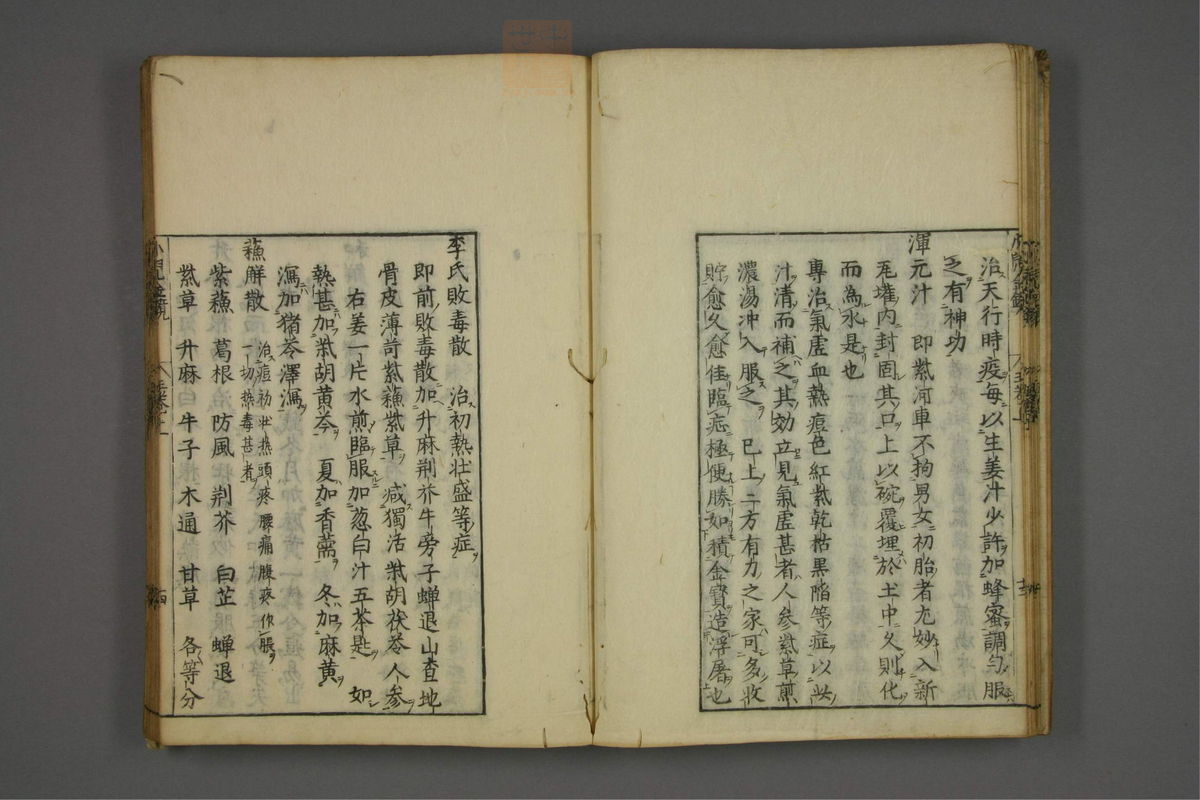 治天行時疫每以生姜汁少許加蜂蜜調勻服
之有神功
渾元汁　即紫河車不拘男女初胎者尤妙入新
瓦罐內封固其口上以碗覆埋於土中久則化
而為水是也
專治氣虛血熱痘色紅紫乾枯黑陷等症以此
汁清而補之其効立見氣虛甚者人參紫草煎
濃湯冲入服之　已上二方有力之家可多收
貯愈久愈佳臨症極便勝如積金寶造浮屠也
李氏敗毒散　治初熱壯盛等症
即前敗毒散加升麻荆芥牛旁子蟬退山查地
骨皮薄苛紫蘓紫草　減獨活柴胡茯苓人參
右姜一片水煎臨服加葱白汁五茶匙　如
熱甚加柴胡黃芩　夏加香薷　冬加麻黃
瀉加猪苓澤瀉
蘓解散　治痘初壯熱頭疼腰痛腹疼作脹
一切熱毒甚者
紫蘓　葛根　防風　荆芥　白芷　蟬退
紫草　升麻　牛子　木通　甘草　各等分